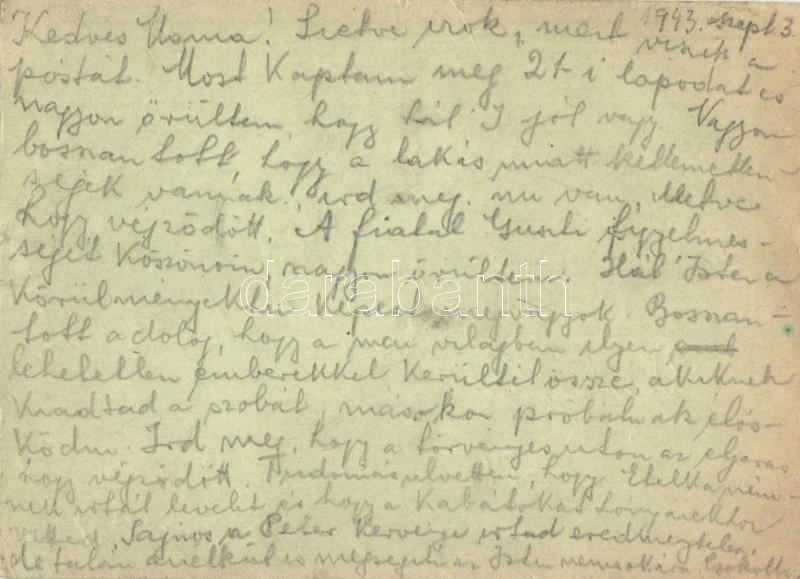 1943. szept 3.
Kedves Mama! Sietve irok, mert viszik a
postát. Most kaptam meg 21-i lapodat és
nagyon örültem, hogy hál' I jól vagy. Nagyon
bosszantott, hogy a lakás miatt kellemetlen-
ségek vannak. ird meg. mi van, illetve
hogy végződött. A fiatal Guszti figyelmes-
ségét köszönöm, nagyon örültem. Hál' Isten a
körülményekhez képest vagyok. Bosszan-
tott a dolog, hogy a mai világban ilyen
lehetetlen emberekkel kerültél össze, akiknek
kiadtad a szobát, másokor próbálnak élős-
ködni. Ird meg, hogy a törvényes uton az eljárás
hogy végződött. Tudomásulvettem, hogy Etelka nem
irtál levelet és hogy a kabátokat
vetted. Sajnos a Péter kérvénye irtad eredménytelen,
de talán anélkül is megsegíti az Isten nemsokára. Csókol
darabanth